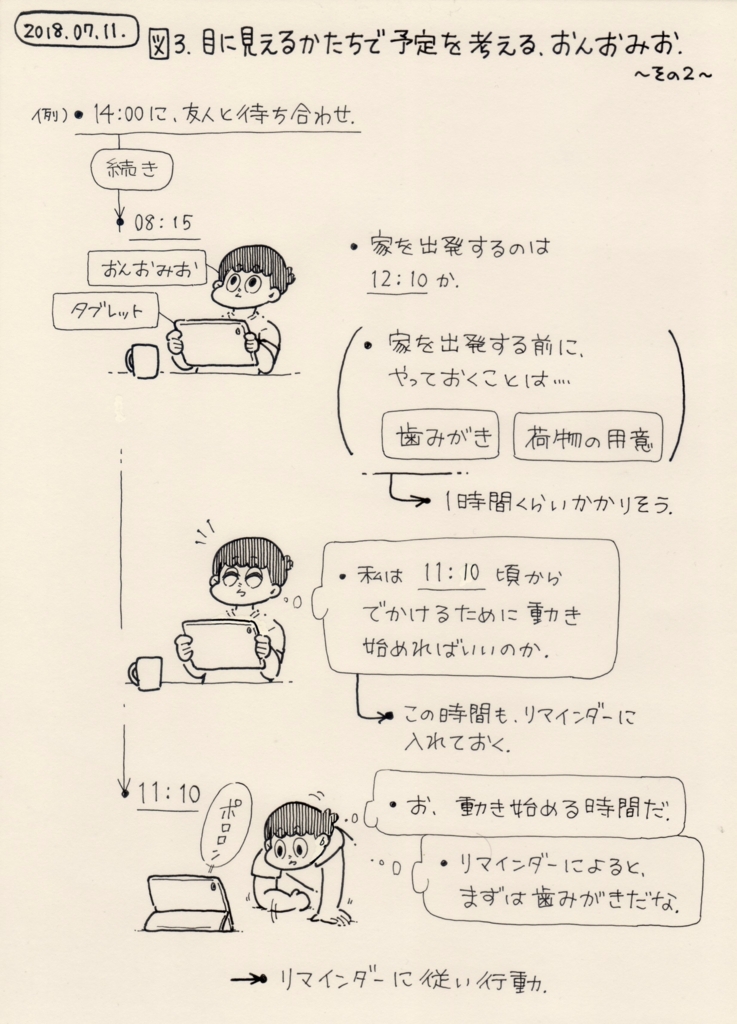 2018.07.11.
図3. 目に見えるかたちで予定を考える、おんおみお.
〜その2〜
例) • 14:00に、友人と待ち合わせ.
続き
• 08:15
おんおみお
タブレット
• 家を出発するのは
12:10 か.
• 家を出発する前に、
やっておくことは…
歯みがき
荷物の用意
1時間くらいかかりそう.
• 私は 11:10 頃から
でかけるために動き
始めればいいのか.
• この時間も、リマインダーに
入れておく.
• 11:10
ポロロン
• お、動き始める時間だ.
• リマインダーによると、
まずは歯みがきだな.
→• リマインダーに従い行動.